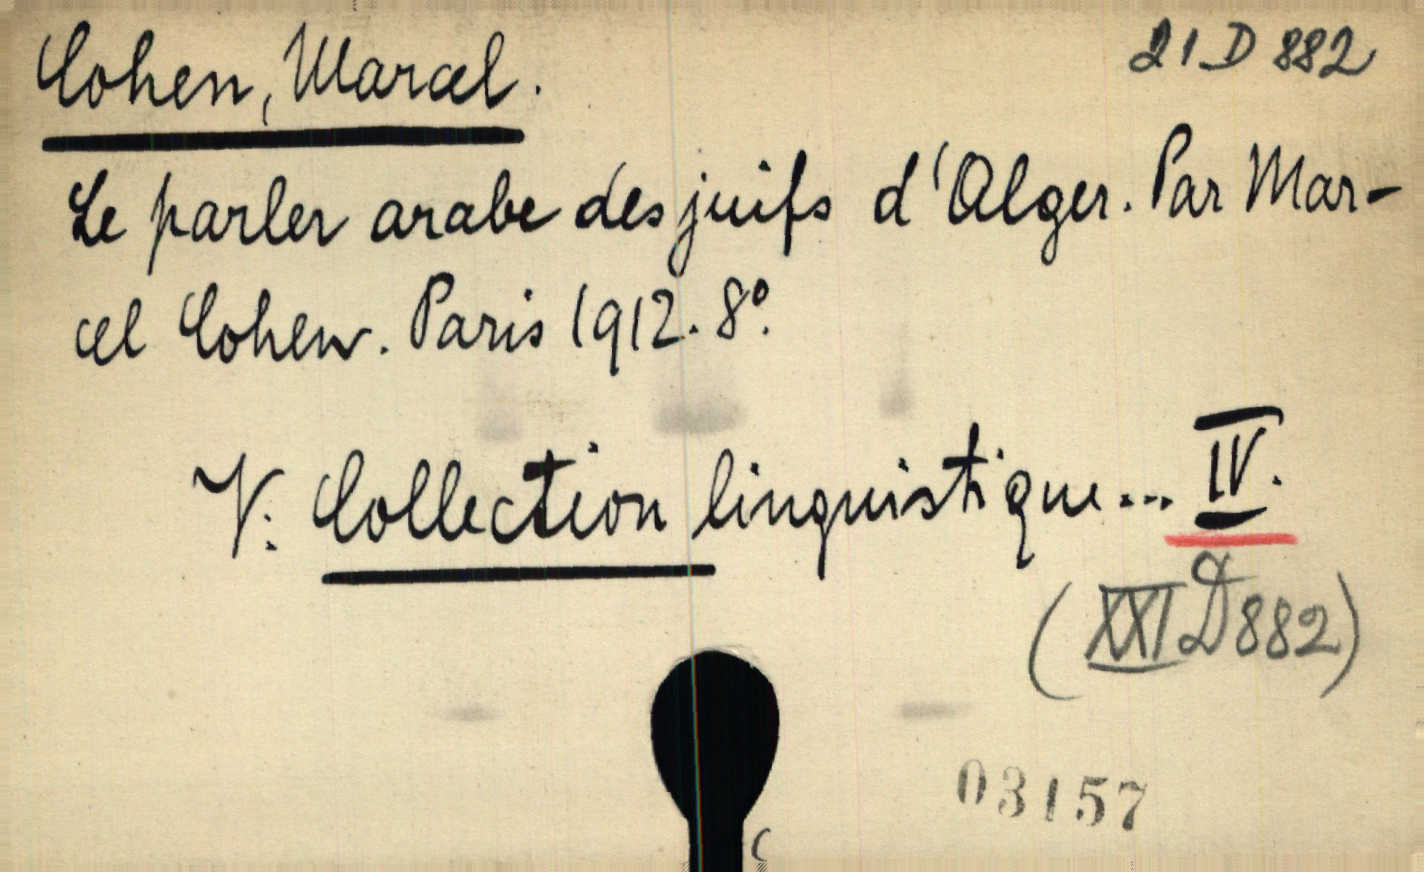 Cohen, Marcel.
21 D 882
Le parler arabe des juifs d'Alger. Par Mar-
cel Cohen. Paris 1912. 8°.
V. Collection linguistique... IV.
(XXI D 882)
03157
C